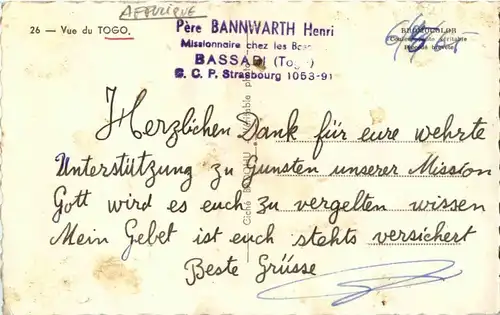 AFRIQUE
26 — Vue du TOGO.
Père BANNWARTH Henri
Missionnaire chez les
BASSARI (Togo)
C. C. P. Strasbourg 1053-91
Herzlichen Dank für eure wehrte
Unterstützung zu Gunsten unserer Mission
Gott wird es euch zu vergelten wissen
Mein Gebet ist euch stehts versichert
Beste Grüsse